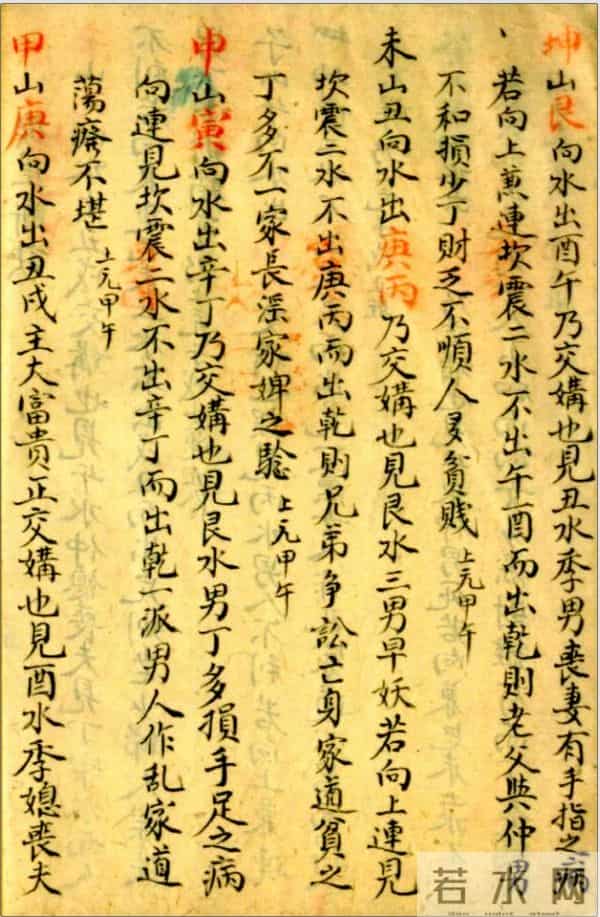 坤山艮向水出酉午乃交媾也見丑水季男丧妻有手指之病
若向上蔭連坎震二水不出午酉而出乾則老父與仲男
不和損少丁財乏不順人多貧賤 上元甲午
未山丑向水出庚丙乃交媾也見艮水三男早妖若向上連見
坎震二水不出庚丙而出乾則兄弟争訟亡身家道貧乏
丁多不一家長淫家婢之驗 上元甲午
申山寅向水出辛丁乃交媾也見艮水男丁多損手足之病
向連見坎震二水不出辛丁而出乾一派男人作乱家道
蕩瘠不堪 上元甲午
甲山庚向水出丑戌主大富貴正交媾也見酉水季媳丧夫
若水网